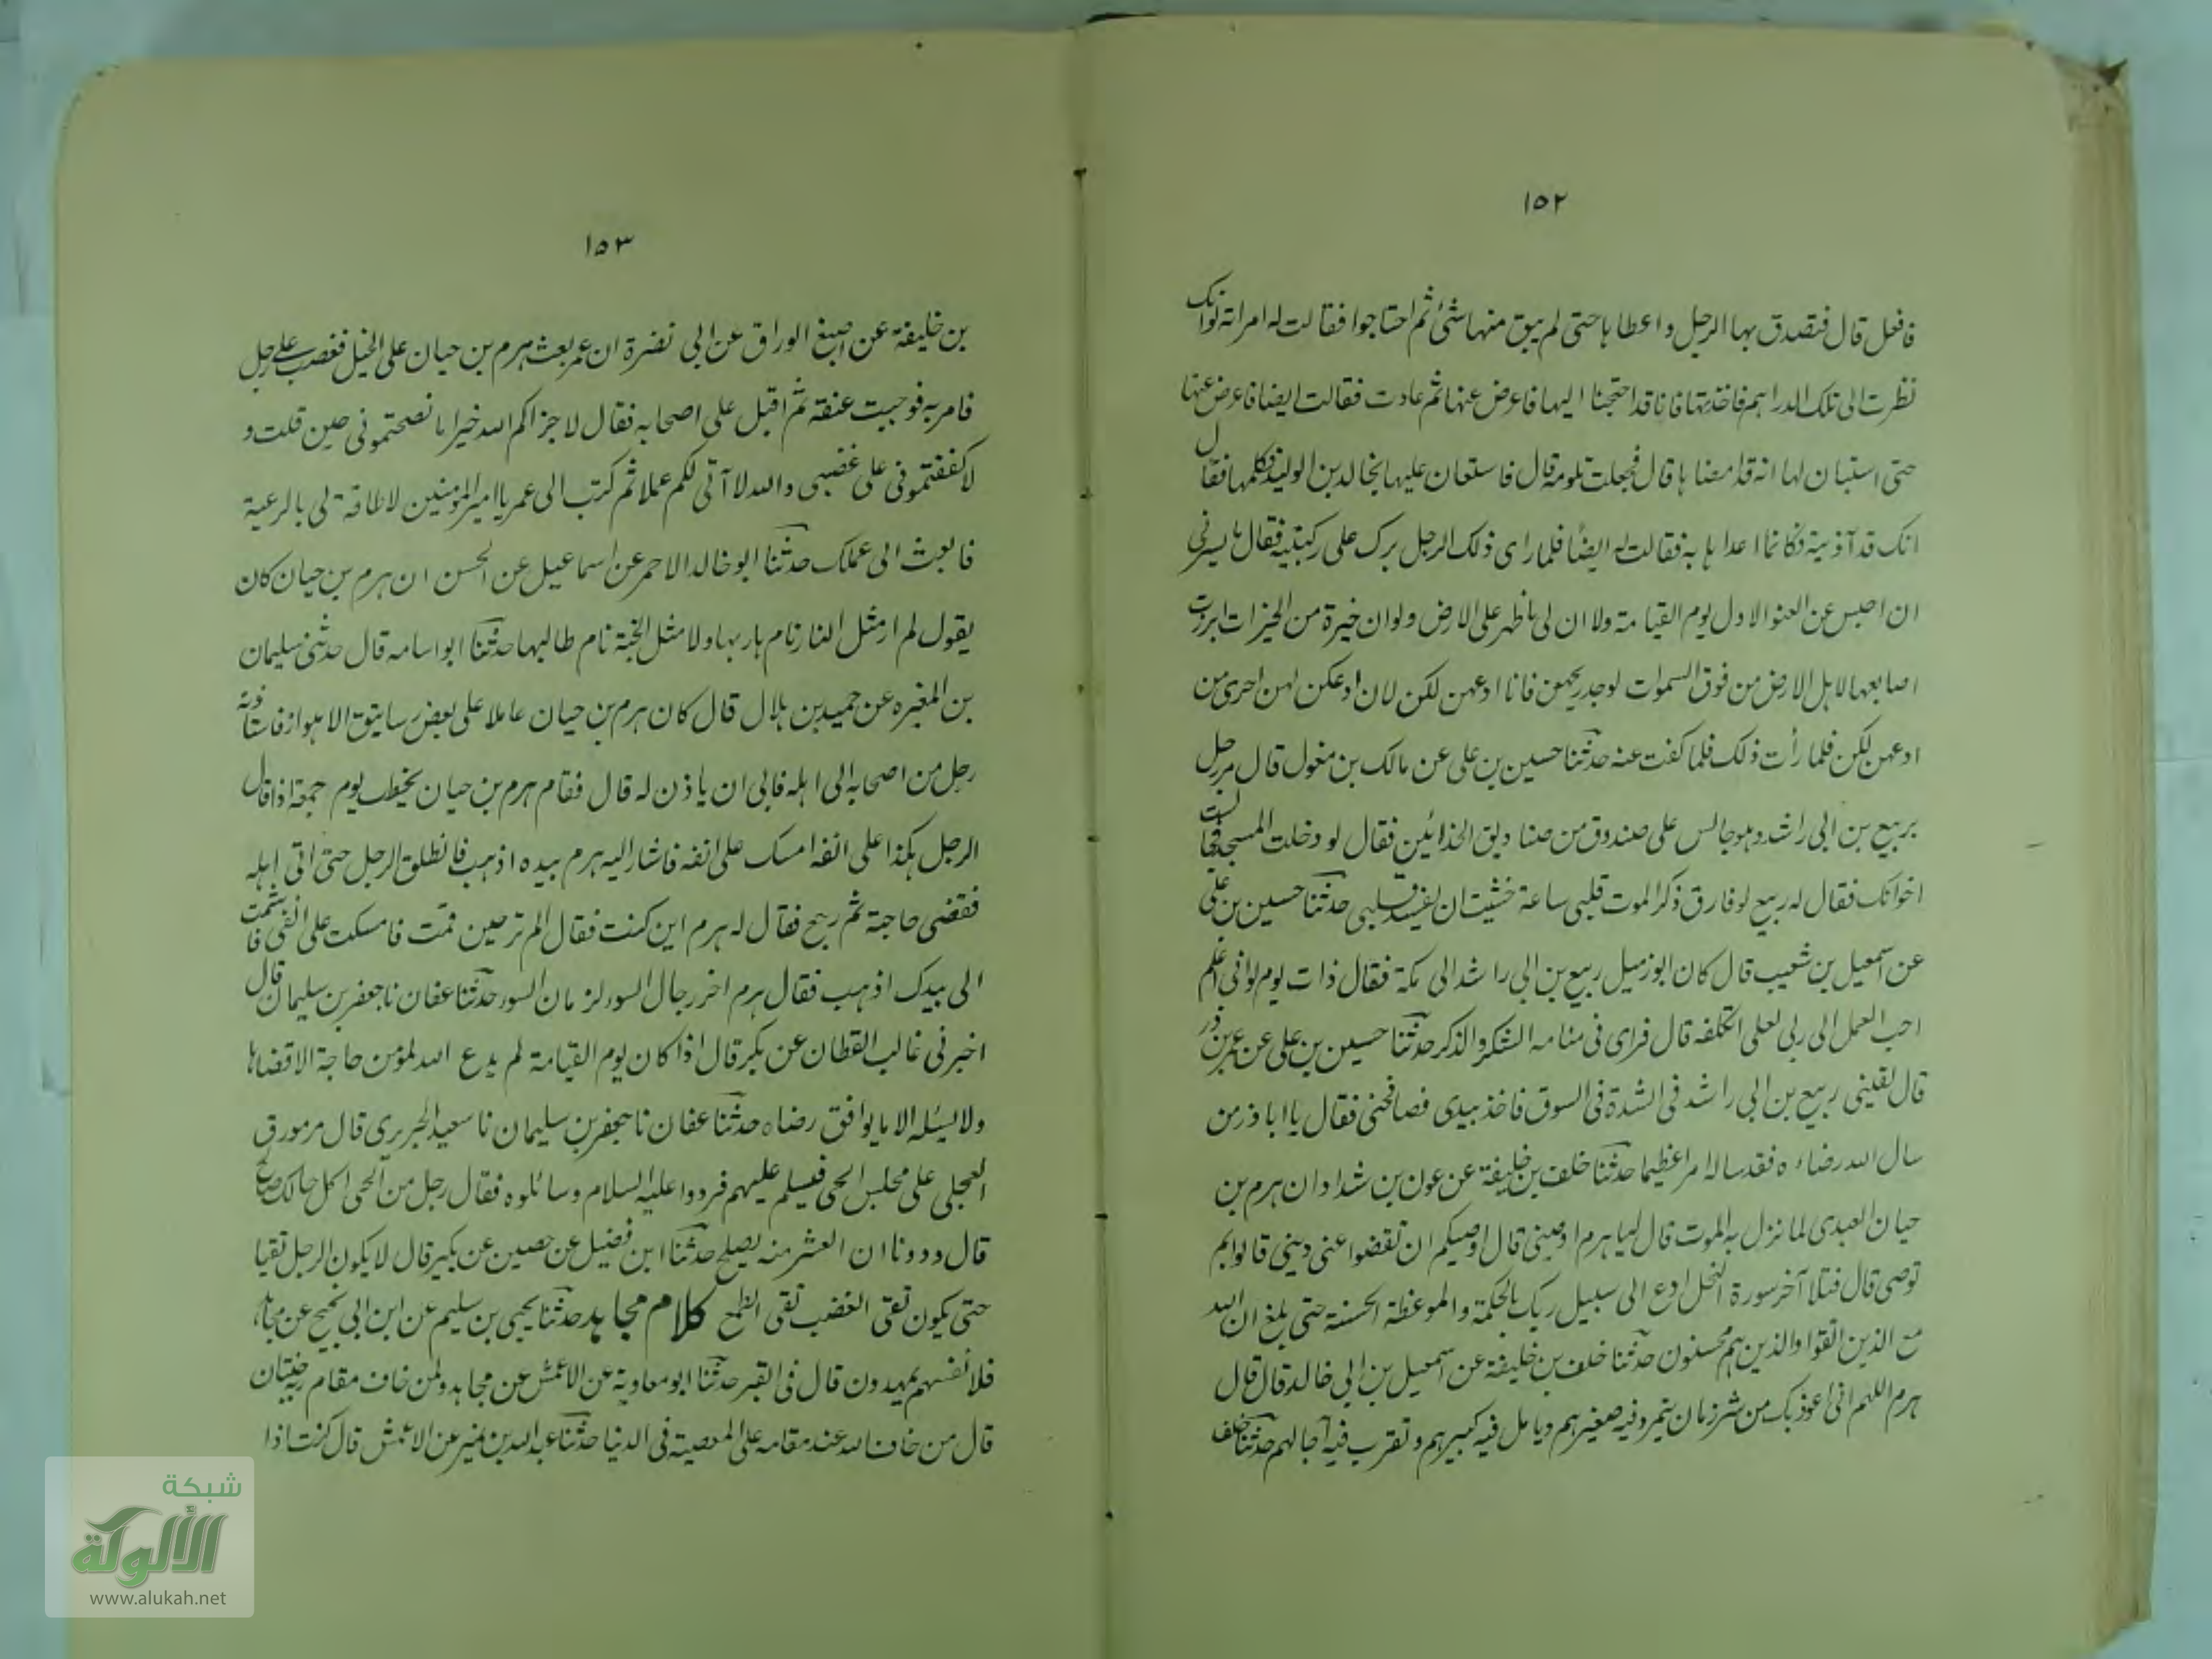 ١٥٢
فافعل قال فتصدق بها الرجل واعطاها حتى لم يبق منها شئ ثم احتاجوا فقالت له امراته لو انك
نظرت الى تلك الدراهم فاخذتها فانا قد احتجنا اليها فاعرض عنها ثم عادت فقالت ايضا فاعرض عنها
حتى استبان لها انه قد امضاها قال فجعلت تلومه قال فاستعان عليها بخالد بن الوليد فكلمها فقال
انك قد آذيتيه فكانما اعداها به فقالت له ايضًا فلما راى ذلك الرجل برك على ركبتيه فقال ما يسرني
ان احبس عن العنق الاول يوم القيامة ولا ان لى ما ظهر على الارض ولو ان خيرة من الخيرات ابرزت
اصابعها لاهل الارض من فوق السموات لوجد ريحهن فانا ادعهن لكن لان ادعكن لهن احرى من
ادعهن لكن فلما رأت ذلك كفت عنه حدثنا حسين بن على عن مالك بن مغول قال مر رجل
بربيع بن ابى راشد وهو جالس على صندوق من صناديق الحذائين فقال لو دخلت المسجد فجالست
اخوانك فقال له ربيع لو فارق ذكر الموت قلبى ساعة خشيت ان يفسد قلبى حدثنا حسين بن على
عن اسمعيل بن شعيب قال كان ابو زميل ربيع بن ابى راشد الى مكة فقال ذات يوم لو انى اعلم
احب العمل الى ربى لعلى اتكلفه قال فراى فى منامه الشكر والذكر حدثنا حسين بن على عن عمر بن ذر
قال لقينى ربيع بن ابى راشد فى السدة فى السوق فاخذ بيدى فصافحنى فقال يا ابا ذر من
سال الله رضاءه فقد ساله امرا عظيما حدثنا خلف بن خليفة عن عون بن شداد ان هرم بن
حيان العبدى لما نزل به الموت قال له يا هرم اوصنى قال اوصيكم ان تقضوا عنى دينى قالوا بم
توصى قال فتلا آخر سورة النحل ادع الى سبيل ربك بالحكمة والموعظة الحسنة حتى بلغ ان الله
مع الذين اتقوا والذين هم محسنون حدثنا خلف بن خليفة عن اسمعيل بن ابى خالد قال قال
هرم اللهم انى اعوذ بك من شر زمان يتمرد فيه صغيرهم ويامل فيه كبيرهم وتقرب فيه آجالهم حدثنا خلف
١٥٣
بن خليفة عن اصبغ الوراق عن ابى نضرة ان عمر بعث هرم بن حيان على الخيل فغضب على رجل
فامر به فوجيت عنقه ثم اقبل على اصحابه فقال لا جزاكم الله خيرا ما نصحتمونى حين قلت و
لا كففتمونى على غضبى والله لا آتى لكم عملا ثم كتب الى عمر يا امير المؤمنين لا طاقة لى بالرعية
فابعث الى عملك حدثنا ابو خالد الاحمر عن اسماعيل عن الحسن ان هرم بن حيان كان
يقول لم ار مثل النار نام هاربها ولا مثل الجنة نام طالبها حدثنا ابو اسامه قال حدثنى سليمان
بن المغيره عن حميد بن هلال قال كان هرم بن حيان عاملا على بعض رساتيق الاهواز فاستاذنه
رجل من اصحابه الى اهله فابى ان ياذن له قال فقام هرم بن حيان يخطب يوم جمعة اذ قال
الرجل هكذا على انفه امسك على انفه فاشار اليه هرم بيده اذهب فانطلق الرجل حتى اتى اهله
فقضى حاجته ثم رجع فقال له هرم اين كنت فقال الم تر حين قمت فامسكت على انفى فاشمت
الى بيدك اذهب فقال هرم اخر رجال السوء لزمان السوء حدثنا عفان نا جعفر بن سليمان قال
اخبرنى غالب القطان عن بكر قال اذا كان يوم القيامة لم يدع الله لمؤمن حاجة الا قضاها
ولا يسئله الا ما يوافق رضاه حدثنا عفان نا جعفر بن سليمان نا سعيد الجريرى قال مر مورق
العجلى على مجلس الحى فسلم عليهم فردوا عليه السلام وسائلوه فقال رجل من الحى اكل حالك صالح
قال وددنا ان العشر منه يصلح حدثنا ابن فضيل عن حصين عن بكير قال لا يكون الرجل تقيا
حتى يكون تقى الغضب تقى الطمع كلام مجاهد حدثنا يحيى بن سليم عن ابن ابى نجيح عن مجاهد
فلانفسهم يمهدون قال فى القبر حدثنا ابو معاوية عن الاعمش عن مجاهد ولمن خاف مقام ربه جنتان
قال من خاف الله عند مقامه على المعصية فى الدنيا حدثنا عبد الله بن نمير عن الاعمش قال كنت اذا
شبكة
الألوكة
www.alukah.net